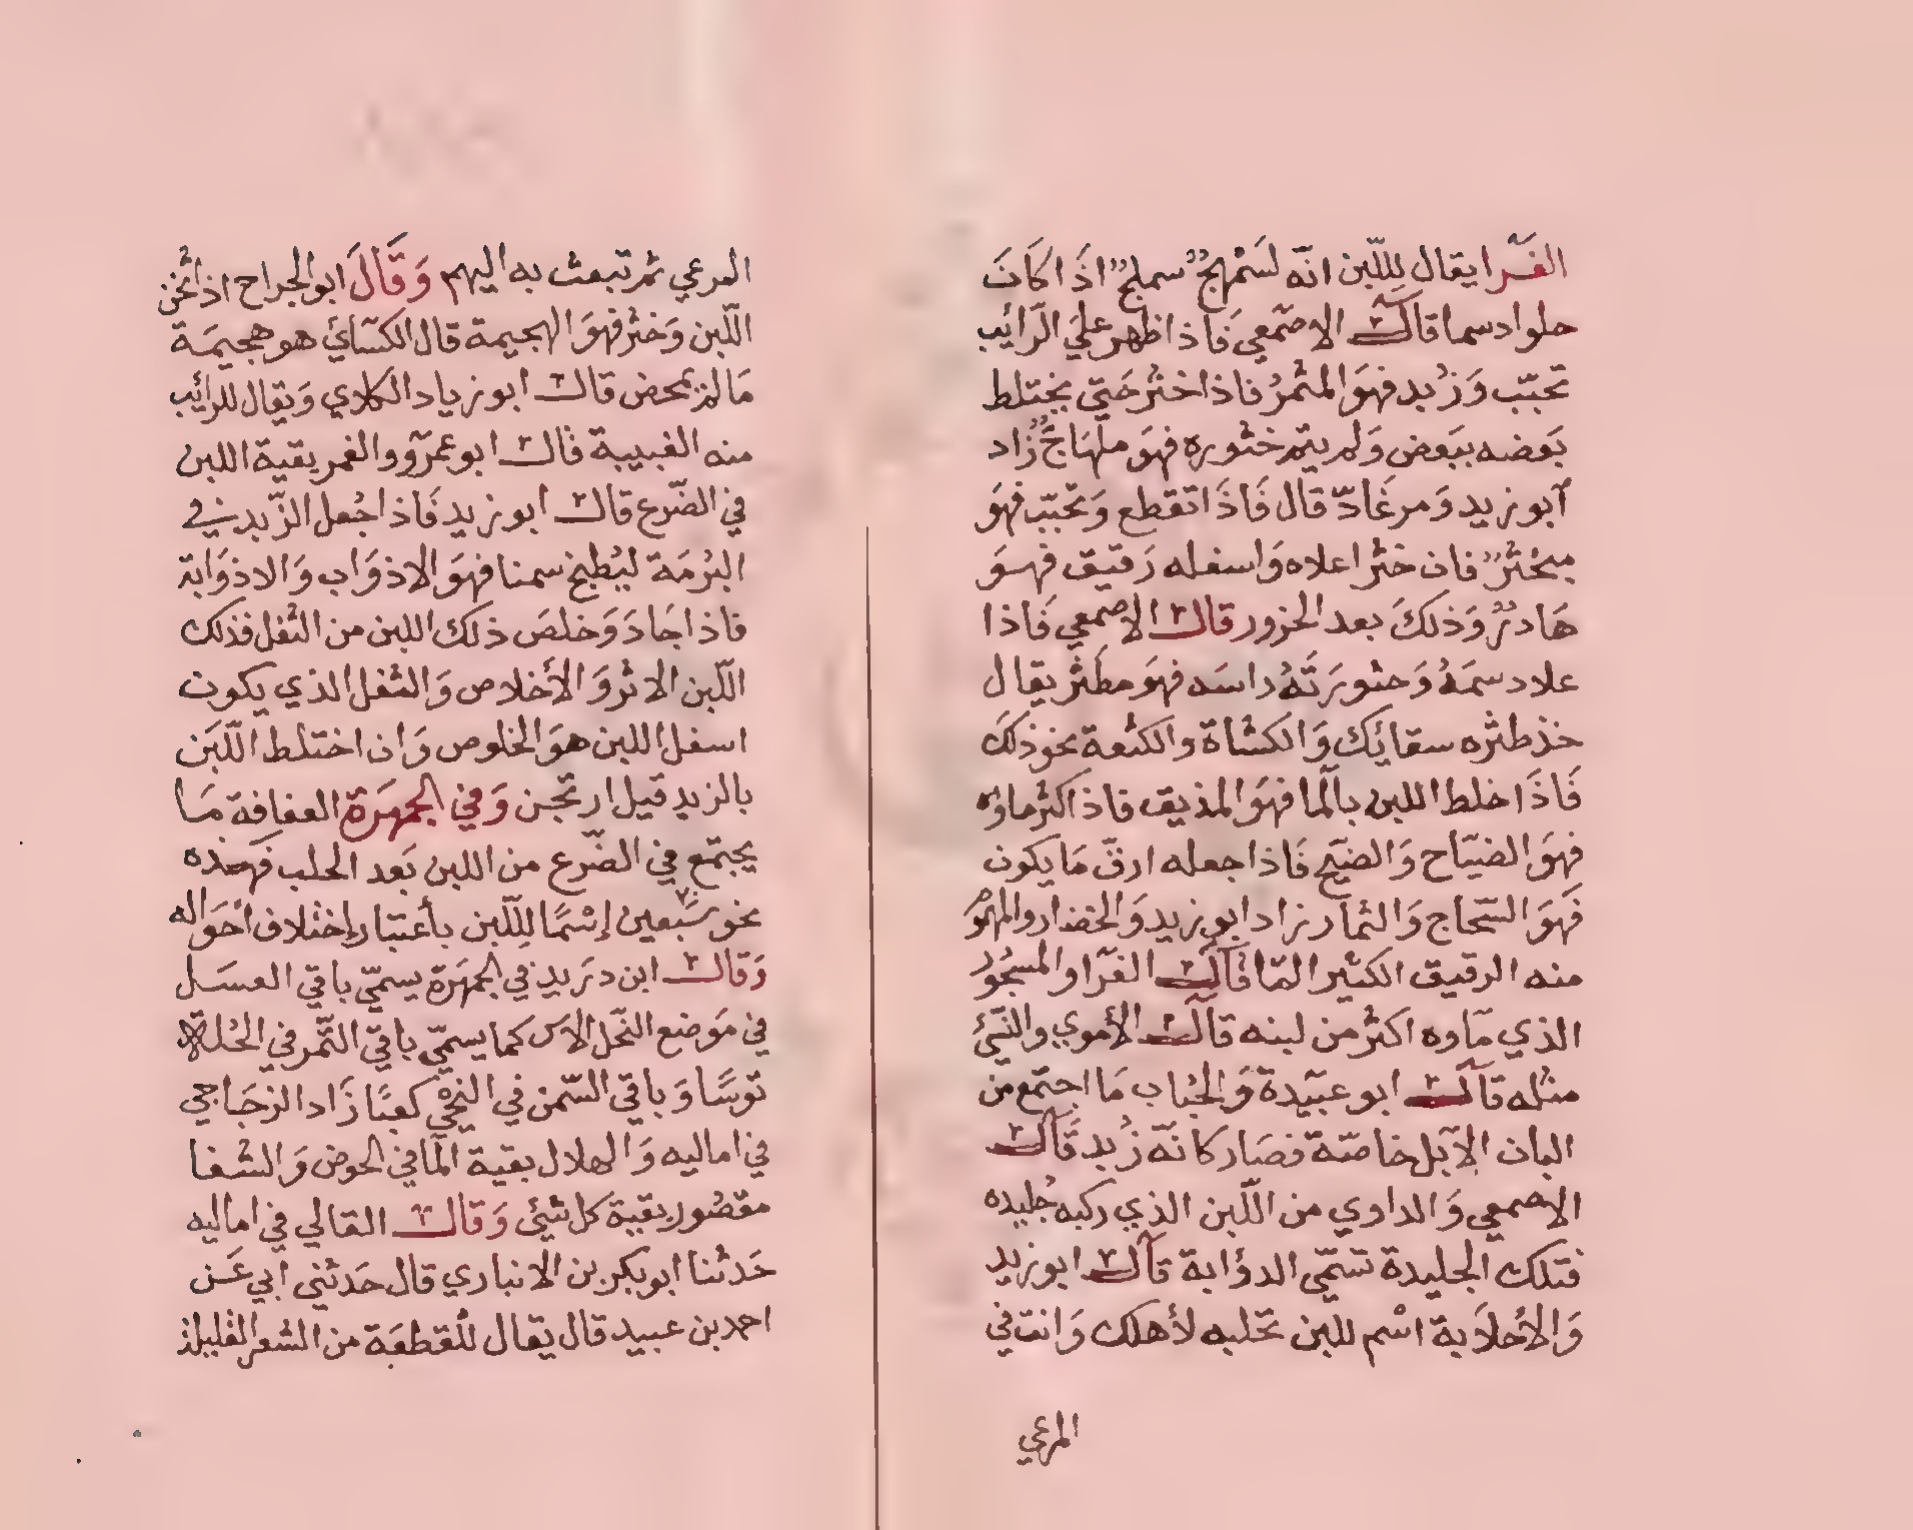 الفَرا يقال لِلّبن انّه لسَمْهجٌ سملجٌ اذَا كَانَ
حلوا دسما قالَ الاصمعي فَاذا ظهر علي الرّائب
تحبّب وَزُبد فهوَ المثمرُ فاذا خثر حَتي يختلط
بَعضه ببَعض وَلم يتم خثوره فهوَ ملهَاجٌ زَاد
أبو زيد وَمرغَادّ قال فَاذَا تقطع وَتحَبّب فهوَ
مبحْثرٌ فان خثر اعلاه وَاسفله رَقيق فهوَ
هَادرٌ وَذلكَ بعد الحزور قال الاصمعي فَاذا
علا دسمَهُ وَحثورَتَهُ راسَه فهوَ مطَثر يقال
خذ طثره سقائك وَالكثاة والكثعة نحو ذلكَ
فَاذَا خلط اللبن بالما فهوَ المذيق فاذ اكثر ماوه
فهوَ الضيَاح وَالضيَح فَاذا جعله ارقّ مَا يكون
فهَوَ السّجاج وَالثمار زاد ابو زيد وَالخضار والمهْوُ
منه الرقيق الكثير المَا قَالَ الفرّا والمسجُورُ
الذي مَاوه اكثر من لبنه قالَ الأموي والنّسْئ
مثله قالَ ابو عبَيدة وَالجُبَاب مَا اجتمع من
البان الآبل خاصّة فصَار كانّه زُبد قَالَ
الاصمعي وَالداوي من اللّبن الذي ركبه جُليده
فتلك الجليدة تسَمّى الدؤابة قَالَ ابو زيد
وَالأحلَابة اسْم للبن تحَلبه لأهلك وَانت في
المرعي
المرعي ثم تبعث به اليهم وَقَالَ ابو الجراح اذ اثخن
اللّبن وَخثر فهوَ الهجيمة قال الكسَائي هو هجيمَة
مَا لم يمخض قال ابو زياد الكلابي وَيقال للرائب
منه الغبيبة قال ابو عمرَو والغبر بقية اللبن
في الضّرع قال ابو زيد فَاذا جُعل الزّبد في
البُرمَة ليُطبخ سمنا فهوَ الاذوَاب وَالاذوَابة
فاذا جَادَ وَخلصَ ذلك اللبن من الثفل فذلك
اللّبن الاثر وَالأخلاص وَالثفل الذي يكون
اسفل اللبن هوَ الخلوص وَان اختلط اللّبَن
بالزبد قيل ارتجَن وَفي الجمهرَة العفافة مَا
يجتمع في الضّرع من اللبن بَعد الحلب فهَذه
نحو سَبعين إسْمًا لِلّبن بأعتبار إختلاف أحوَاله
وَقال ابن دريد في الجمهَرة يسمّي باقي العسَل
في مَوضع النّحل الاس كما يسمّي باقي التّمر في الجُلة
توسًا وَباقي السّمن في النحْي كعبًا زَاد الزجَاجي
في اماليه وَالهلال بقية المَا في الحوض وَالشفا
مقصُور بقية كل شئ وَقال القالي في اماليه
حَدثنا ابو بكر بن الانباري قال حَدثني ابي عَن
احمد بن عبيد قال يقال للقطعَة من الشعر القليلة